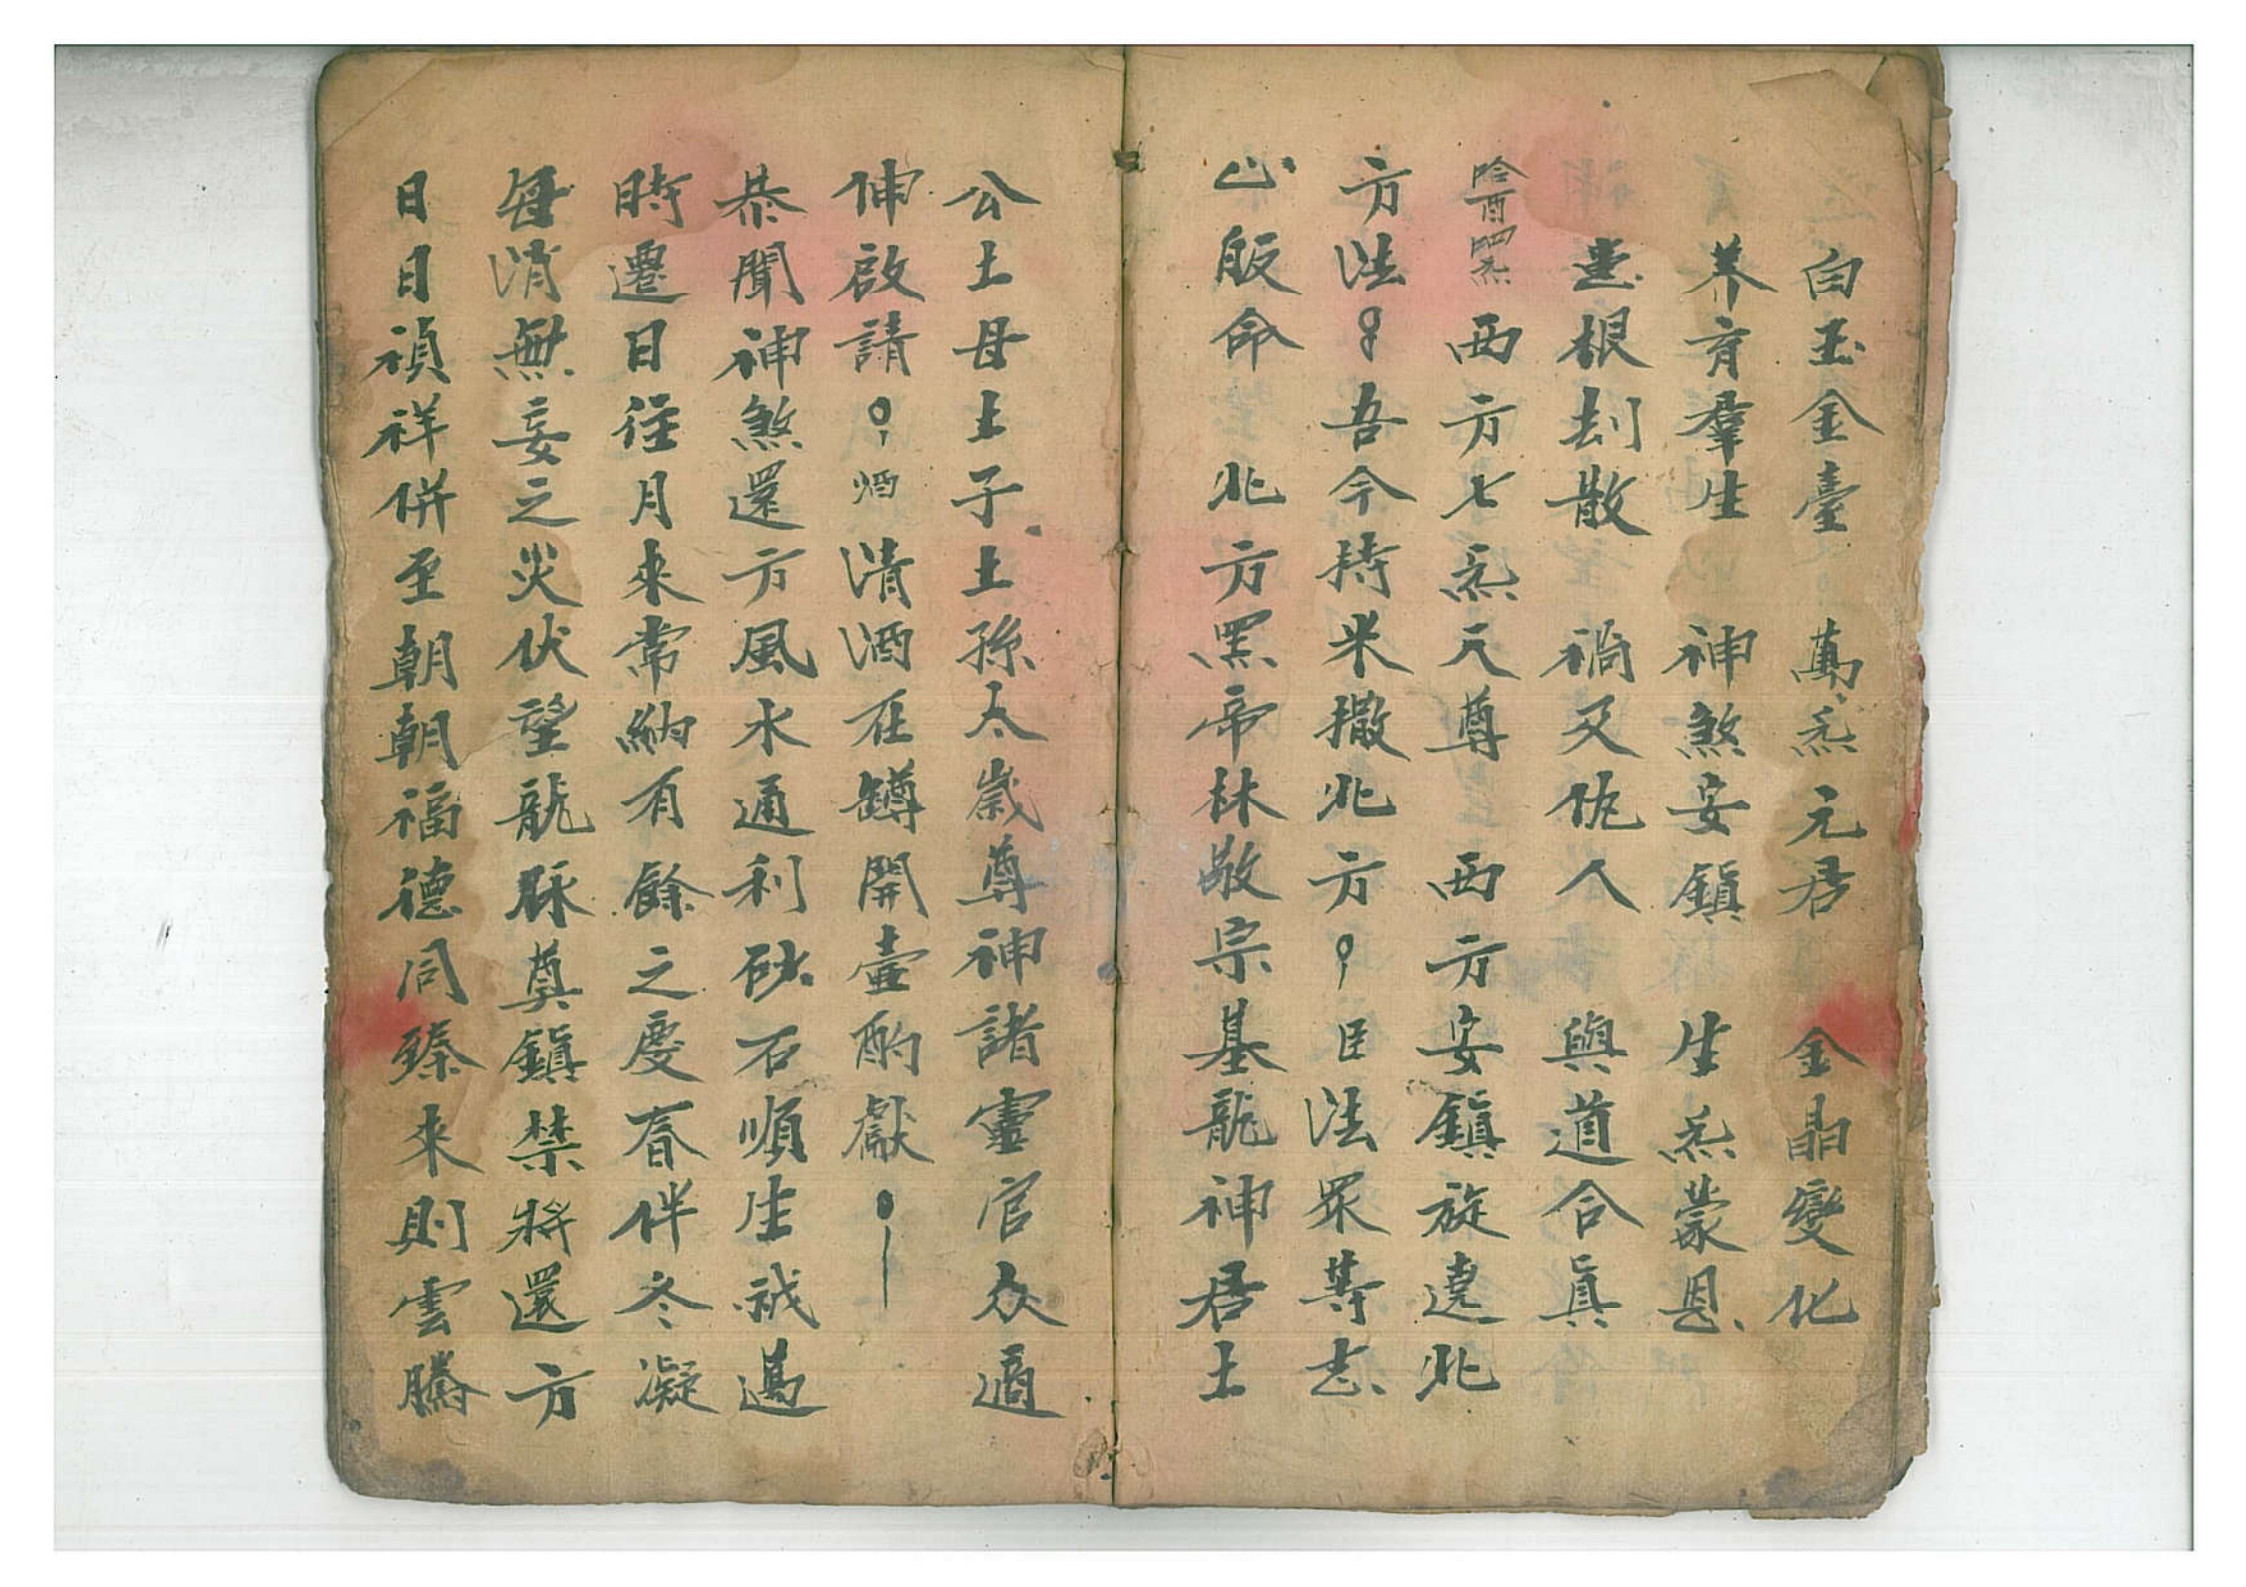 白玉金臺 萬炁元君 金晶變化
养育羣生 神煞安鎮 生炁蒙恩
根刦散 禍及他人 與道合真
西方七炁天尊 西方安鎮旋遶北
方法 吾今持米撒北方 臣法眾等志
心皈命 北方黑帝林敬宗基龍神君土
公土母土子土孫太歲尊神諸靈官众適
伸啟請 酒 清酒在罇開壺酌獻
恭聞神煞還方風水通利砂石順生戒過
時遷日往月來常納有餘之慶春伴冬凝
每消無妄之災伏望龍脉奠鎮禁將還方
日日禎祥併至朝朝福德同臻來則雲騰